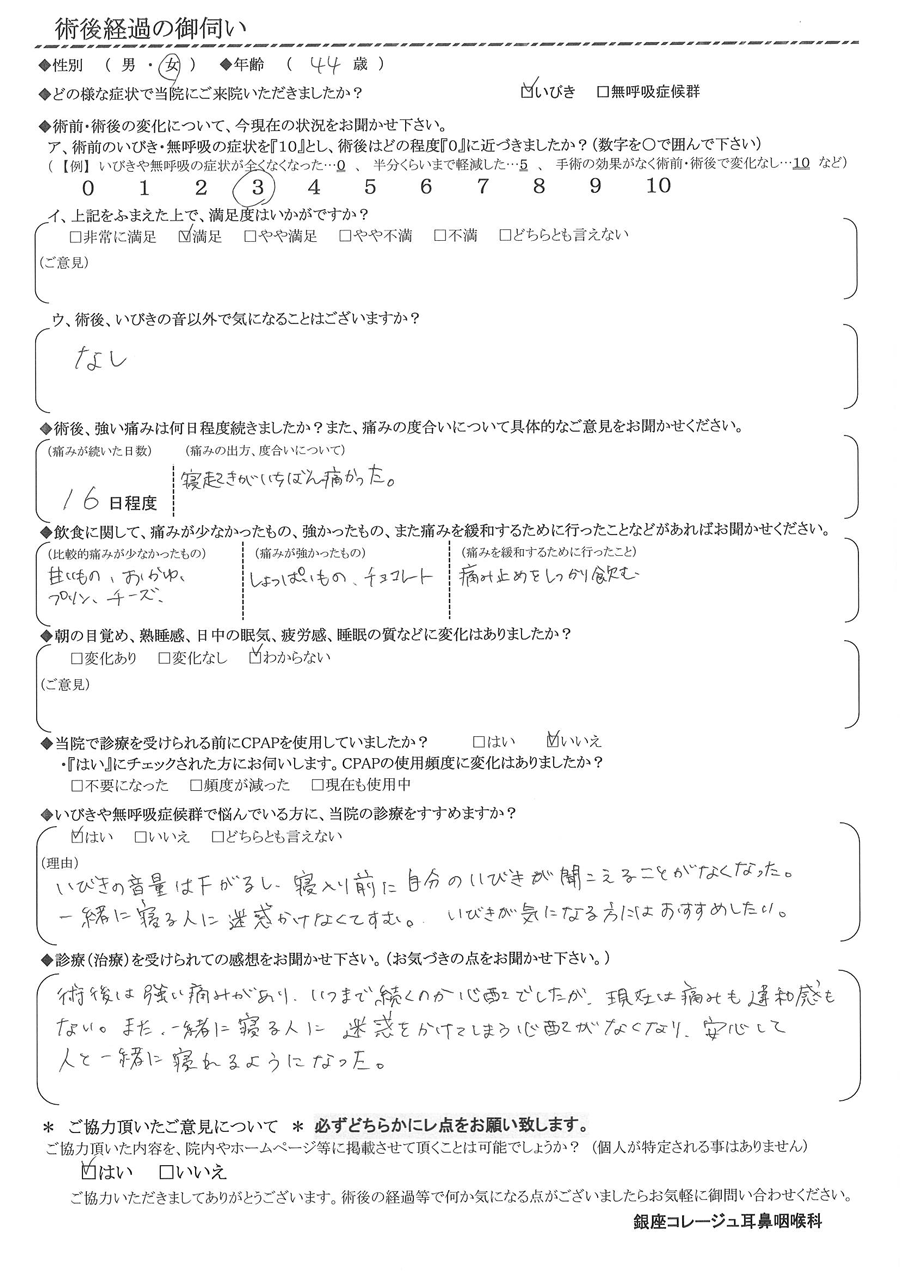 術後経過の御伺い
◆性別 （ 男 ・ 女 ） ◆年齢 （ 44 歳 ）
◆どの様な症状で当院にご来院いただきましたか？ ☑いびき □無呼吸症候群
◆術前・術後の変化について、今現在の状況をお聞かせ下さい。
ア、術前のいびき・無呼吸の症状を『10』とし、術後はどの程度『0』に近づきましたか？（数字を〇で囲んで下さい）
（ 【例】 いびきや無呼吸の症状が全くなくなった…0 、 半分くらいまで軽減した…5 、 手術の効果がなく術前・術後で変化なし…10 など）
0 1 2 3 4 5 6 7 8 9 10
イ、上記をふまえた上で、満足度はいかがですか？
□非常に満足 ☑満足 □やや満足 □やや不満 □不満 □どちらとも言えない
（ご意見）
ウ、術後、いびきの音以外で気になることはございますか？
なし
◆術後、強い痛みは何日程度続きましたか？また、痛みの度合いについて具体的なご意見をお聞かせください。
（痛みが続いた日数） （痛みの出方、度合いについて）
寝起きがいちばん痛かった。
16 日程度
◆飲食に関して、痛みが少なかったもの、強かったもの、また痛みを緩和するために行ったことなどがあればお聞かせください。
（比較的痛みが少なかったもの） （痛みが強かったもの） （痛みを緩和するために行ったこと）
甘いもの、おかゆ、 しょっぱいもの、チョコレート 痛み止めをしっかり飲む
プリン、チーズ、
◆朝の目覚め、熟睡感、日中の眠気、疲労感、睡眠の質などに変化はありましたか？
□変化あり □変化なし ☑わからない
（ご意見）
◆当院で診療を受けられる前にCPAPを使用していましたか？ □はい ☑いいえ
・『はい』にチェックされた方にお伺いします。CPAPの使用頻度に変化はありましたか？
□不要になった □頻度が減った □現在も使用中
◆いびきや無呼吸症候群で悩んでいる方に、当院の診療をすすめますか？
☑はい □いいえ □どちらとも言えない
（理由）
いびきの音量は下がるし、寝入り前に自分のいびきが聞こえることがなくなった。
一緒に寝る人に迷惑かけなくてすむ。 いびきが気になる方にはおすすめしたい。
◆診療（治療）を受けられての感想をお聞かせ下さい。（お気づきの点をお聞かせ下さい。）
術後は強い痛みがあり、いつまで続くのか心配でしたが、現在は痛みも違和感も
ない。また、一緒に寝る人に迷惑をかけてしまう心配がなくなり、安心して
人と一緒に寝れるようになった。
＊ ご協力頂いたご意見について ＊ 必ずどちらかにレ点をお願い致します。
ご協力頂いた内容を、院内やホームページ等に掲載させて頂くことは可能でしょうか？ （個人が特定される事はありません）
☑はい □いいえ
ご協力いただきましてありがとうございます。術後の経過等で何か気になる点がございましたらお気軽に御問い合わせください。
銀座コレージュ耳鼻咽喉科